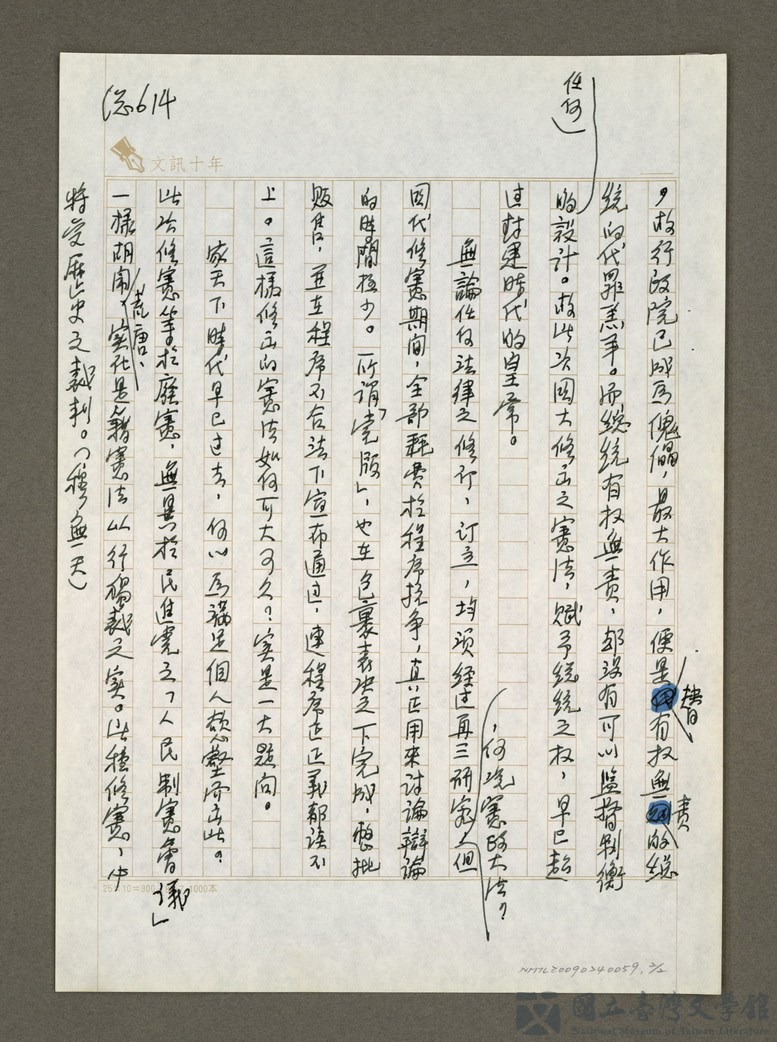 (忞614
文訊十年
，故行政院已成為傀儡，最大作用，便是替有权無責的總
統的代罪羔羊。而總統有权無責，都沒有可以監督制衡
的設計。故此次國大修出之憲法，賦予總統之权，早已超
过封建時代的任何皇帝。
無論任何法律之修訂，訂立，均須经过再三研究，何況憲政大法？但
國代修憲期间，全部耗費於程序抗争，真正用來討論辯論
的時間極少。所謂「完成」，也在包裹表決之下完成，整批
販售，並在程序不合法下宣布通过，連程序正正義都談不
上。這樣修出的憲法如何可大可久？實是一大題问。
家天下時代早已过去，何以為滿足個人慾壑而出此？
此次修憲等於廢憲，無異於民進党之「人民制憲會議」
一樣胡闹、荒唐，實在是藉憲法以行獨裁之實。此種修憲，必
將受歷史之裁判。（穆無天）
25×10=300 1000本
NMTL20090240059, 2/2
國立臺灣文學館
National Museum of Taiwan Literature